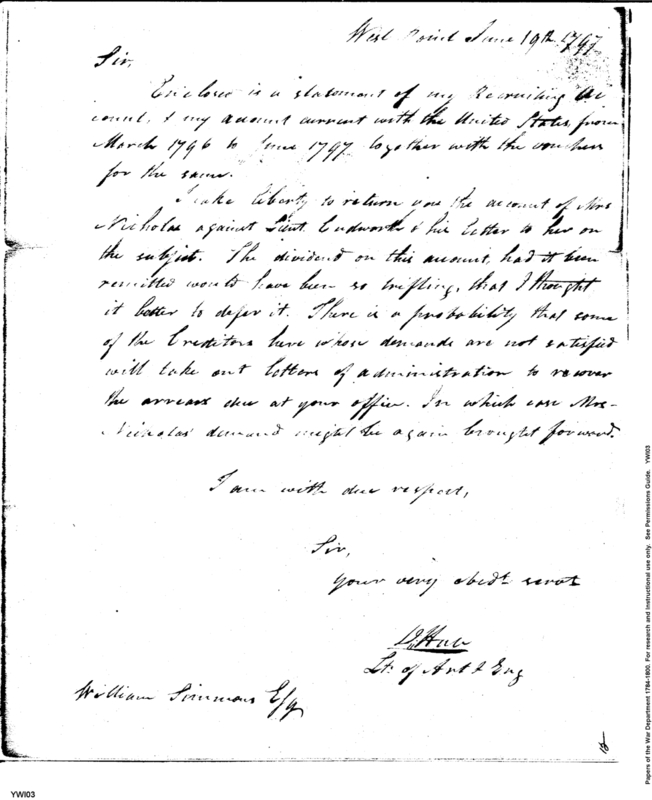 West Point June 19th 1797
Sir,
Enclosed is a statement of my Recruiting Ac
count, & my account current with the United States, from
March 1796 to June 1797 together with the vouchers
for the same.
I take liberty to return you the account of Mrs
Nicholas against Lieut. Cudworth & his letter to her on
the subject. The dividend on this amount, had it been
remitted would have been so trifling, that I thought
it better to defer it. There is a probability that some
of the Creditors here whose demands are not satisfied
will take out letters of administration to recover
the arrears due at your office. In which case Mrs
Nicholas' demand might be again brought forward.
I am with due respect,
Sir,
your very obedt. servt
Lt. of Art & Eng
William Simmons Esq
YWI03
Papers of the War Department 1784-1800. For research and instructional use only. See Permissions Guide. YWI03